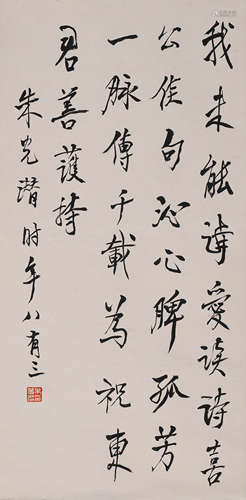 我未能诗爱读诗喜
公佳句沁心脾孤芳
一脉傳千載為祝東
君善護持
朱光潜时年八有三